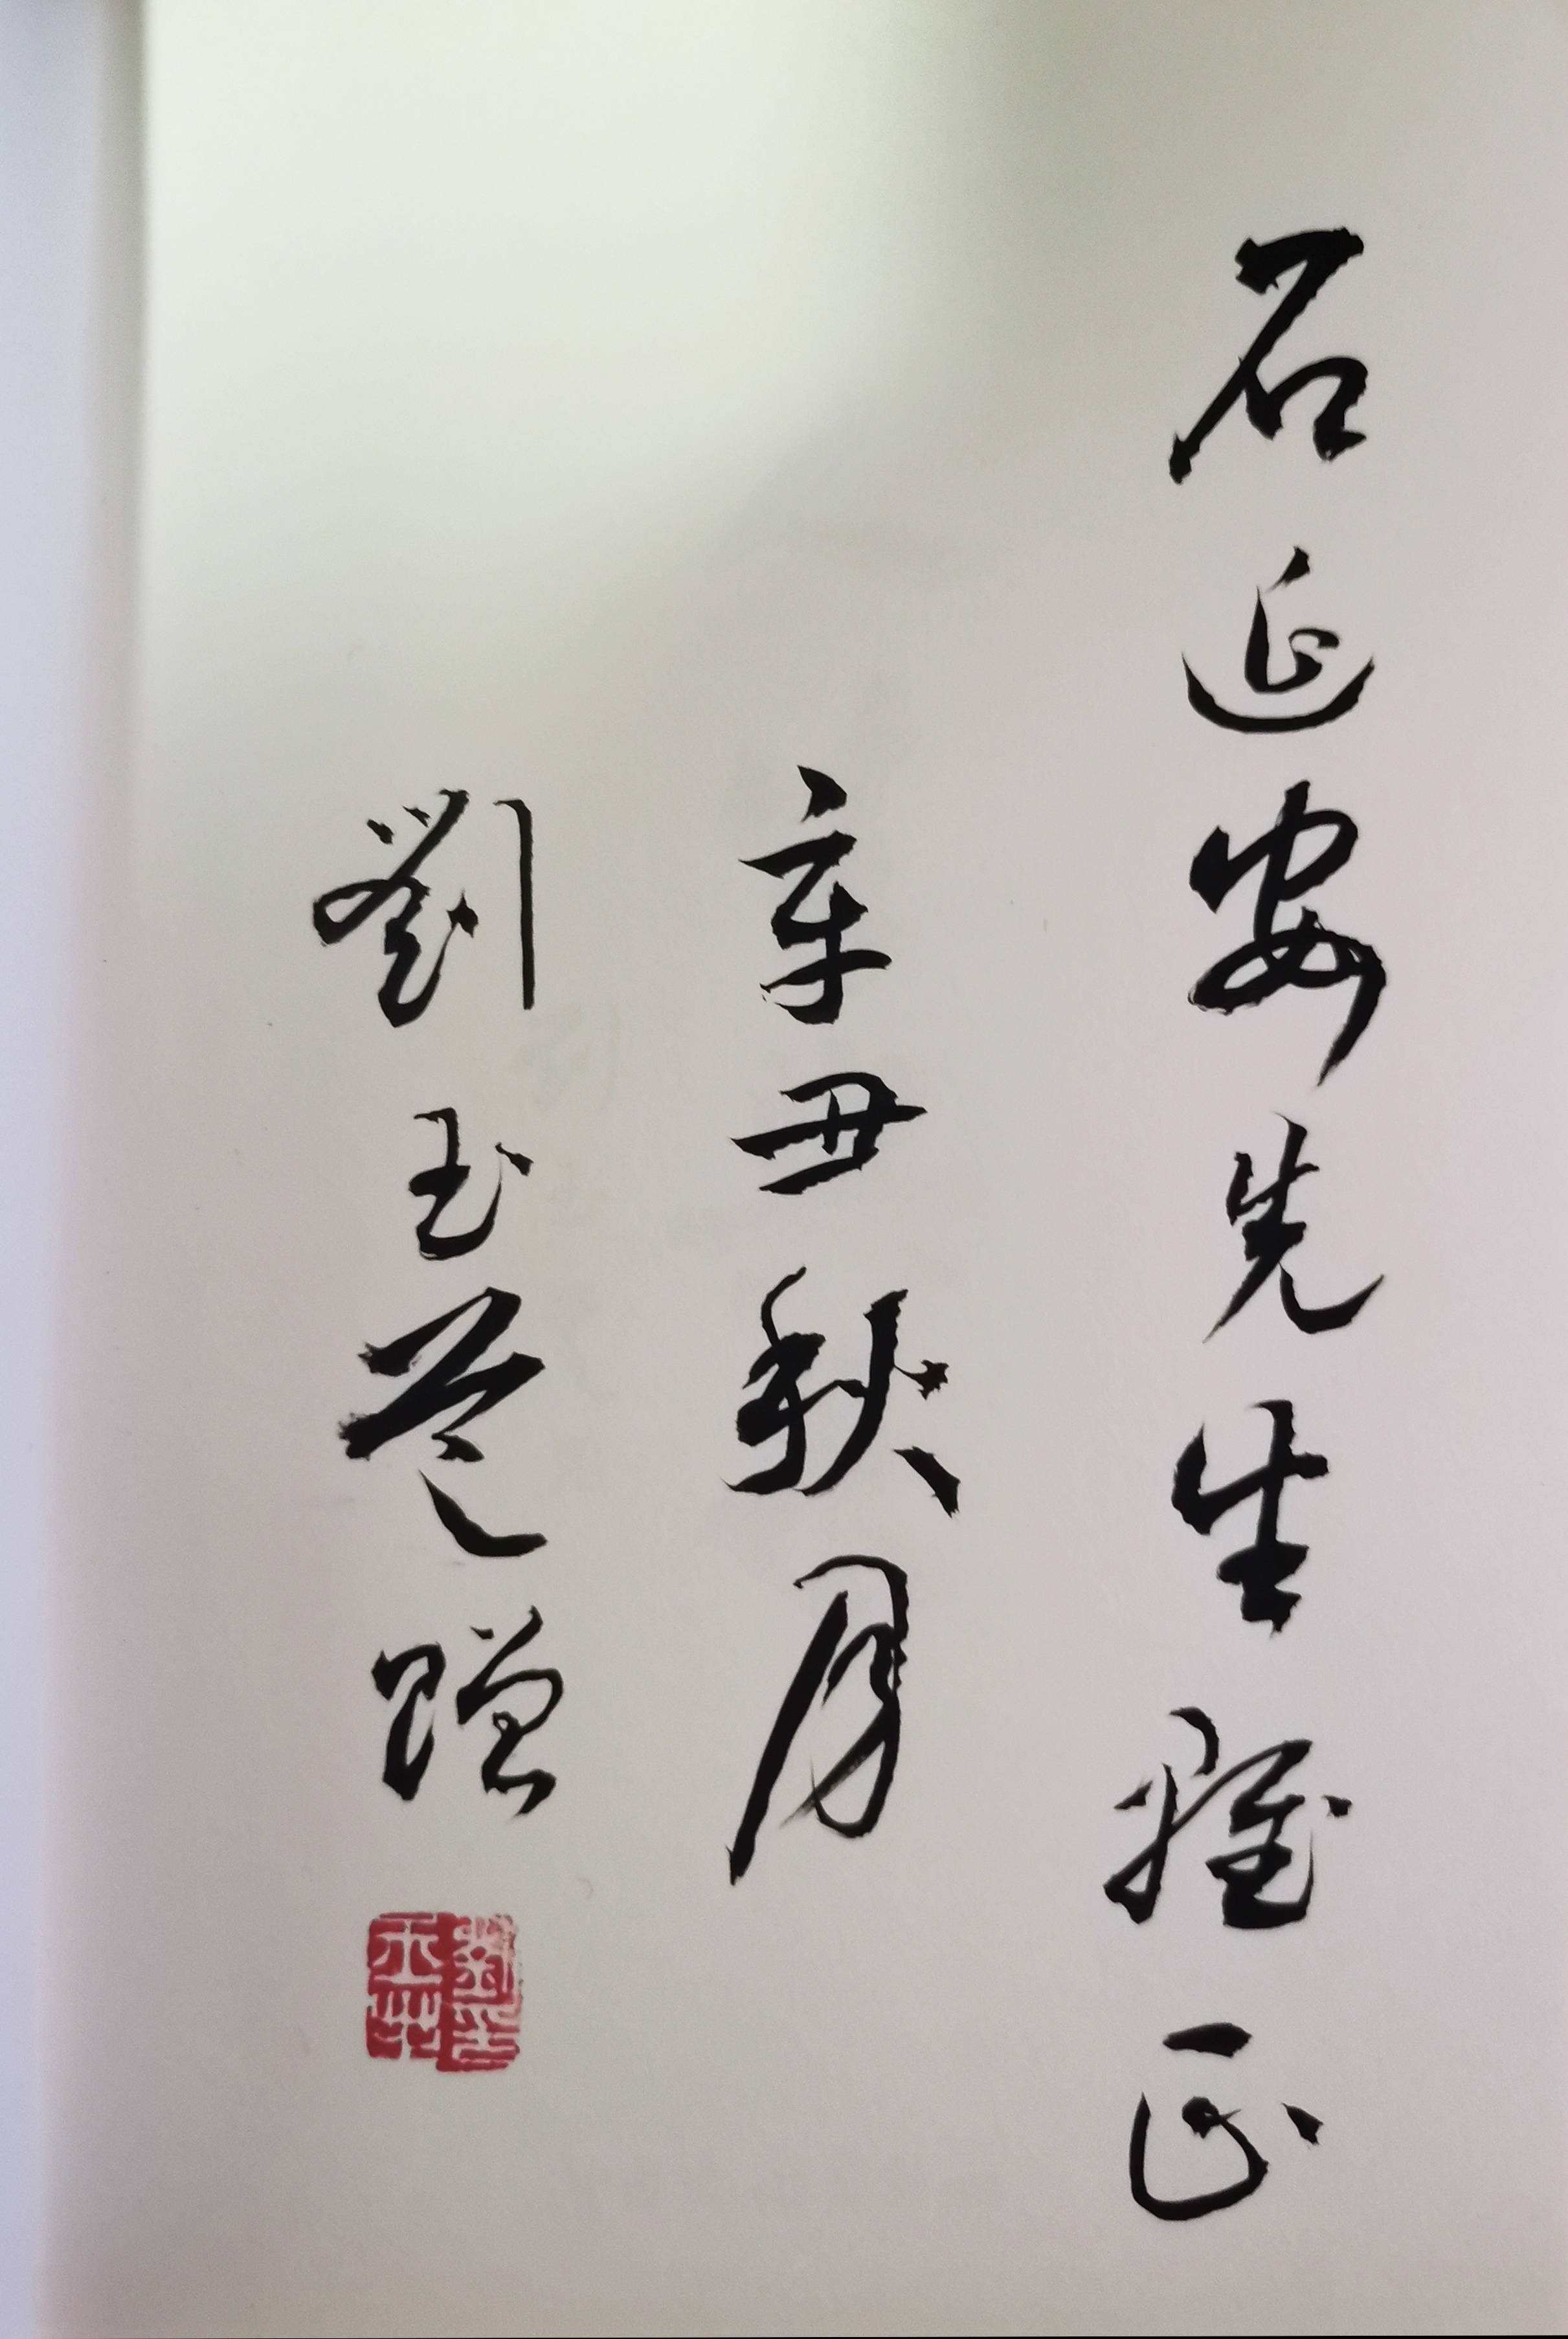 石延安先生雅正
辛丑秋月
劉玉贈